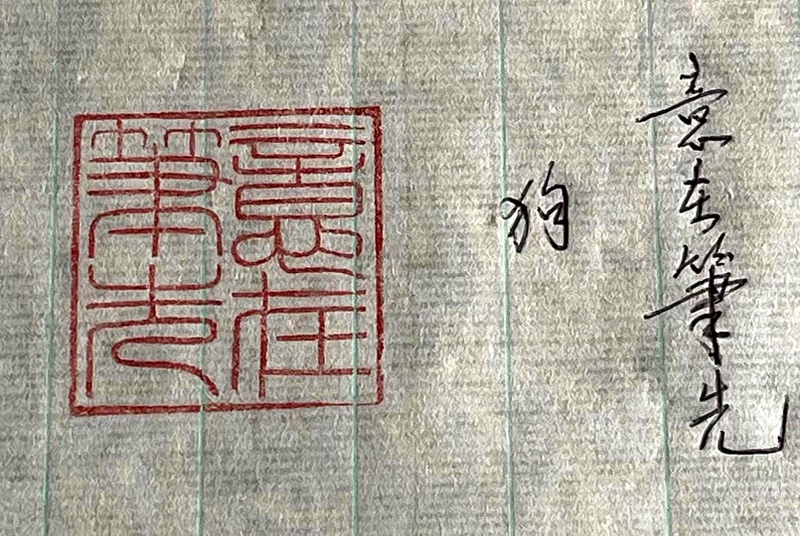 意在筆先
狗
意在
筆先